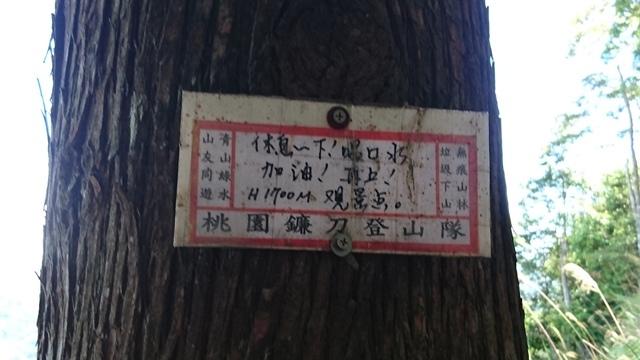 休息一下!喝口水
加油!再上!
H1700M 观景点。
無痕山林
垃圾下山
青山綠水
山友同遊
桃園鐮刀登山隊